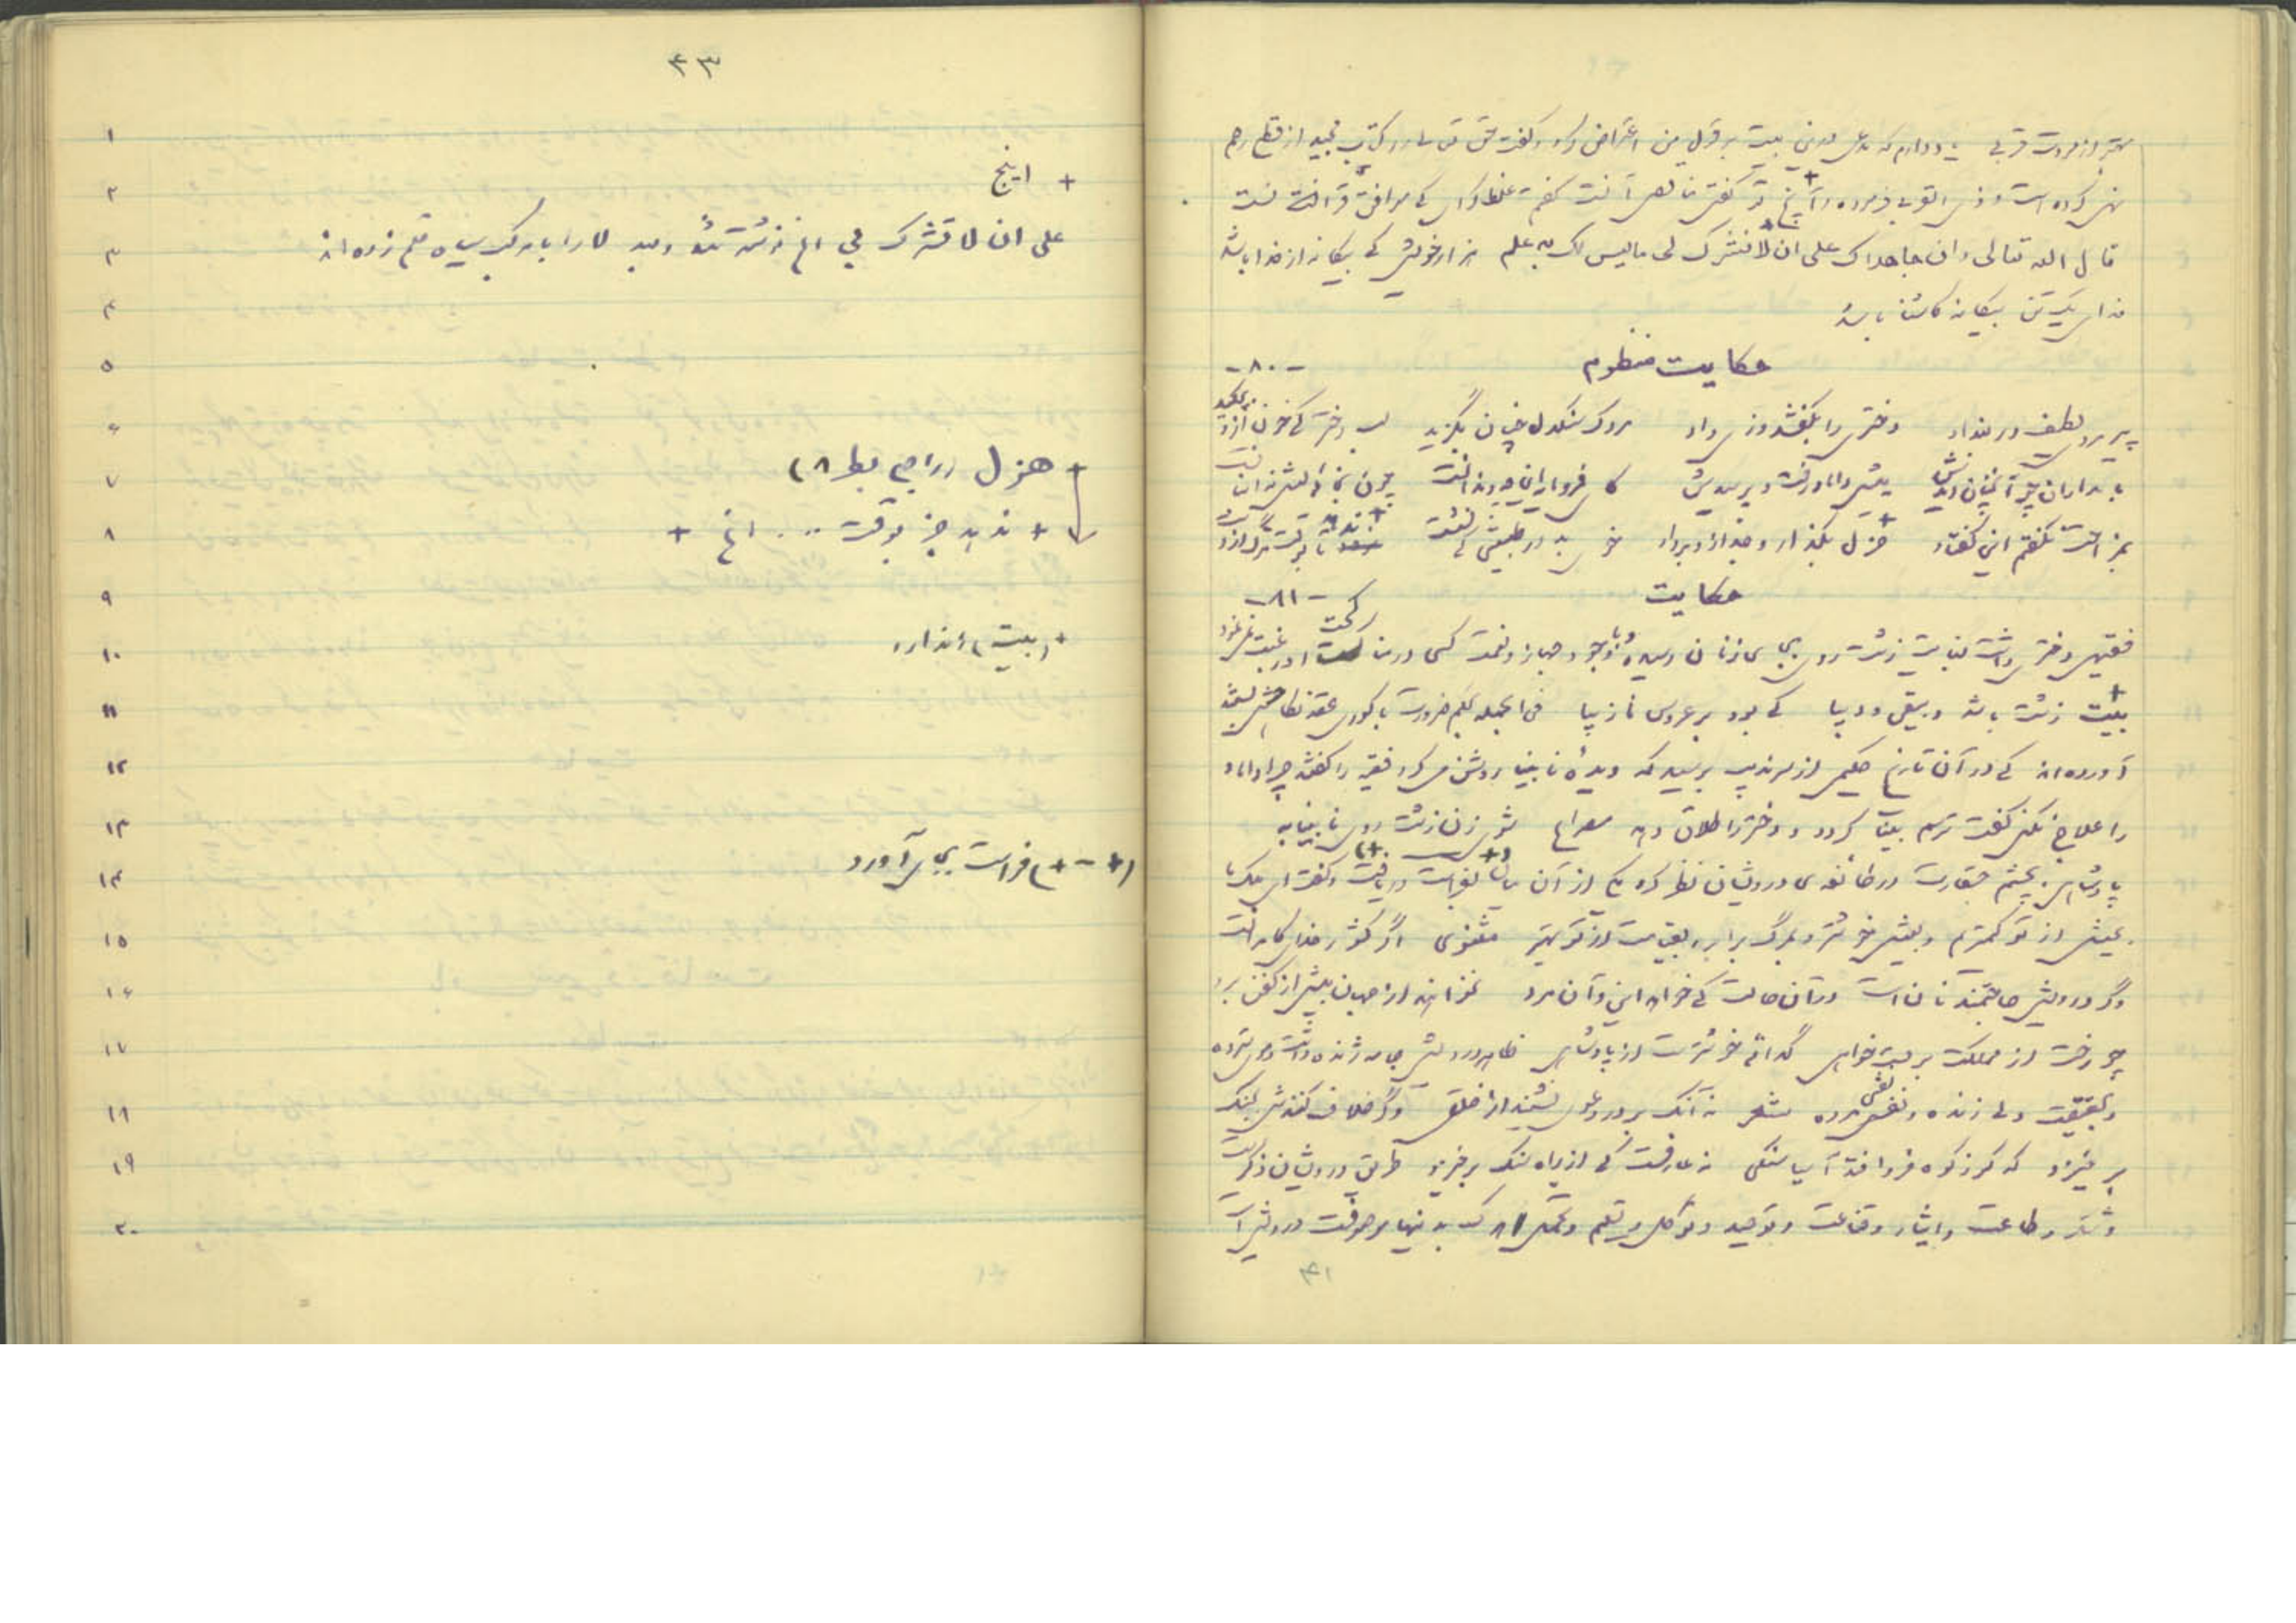 بهتر از مودت قربی یاد دارم که مدعی درین بیت بر قول من اعتراض کرد و گفت حق تعالی در کتاب مجید از قطع رحم
نهی کرده است و ذی القربی فرموده و آنچ تو گفتی مناقص آنست گفتم غلط کردی که موافق قرآنست
قال الله تعالی وان جاهداک علی ان لا تشرک لی مالیس لک به علم هزار خویش که بیگانه از خدا باشد
فدای یک تن بیگانه کاشنا باشد
حکایت منظوم -۸۰-
پیر مردی لطیف در بغداد دخترش را بکفشدوزی داد مردک سنگدل چنان بگزید لب دختر که خون ازو بچکید
بامدادان پدر چنان دیدش پیش داماد رفت و پرسیدش کای فرومایه این چه دندانست چون
بمزاحت نگفتم این گفتار هزل بگذار و جد ازو بردار خوی بد در طبیعتی که نشست ندهد تا بوقت مرگ از دست
حکایت -۸۱-
فقیهی دختری داشت بغایت زشت روی بجای زنان رسیده و با وجود جهاز و نعمت کسی در مناکحت او رغبت نمی‌نمود
بیت زشت باشد دبیقی و دیبا که بود بر عروس نازیبا فی الجمله بحکم ضرورت با کوری عقد نکاحش بستند
آورده‌اند که در آن تاریخ حکیمی از سرندیب برسید که دیدهٔ نابینا روشن می‌کرد فقیه را گفتند چرا داماد
را علاج نکنی گفت ترسم بینا گردد و دختر را طلاق دهد مصراع شوی زن زشت روی نابینا به
پادشاهی بچشم حقارت در طائفه‌ی درویشان نظر کرد یکی از آن میان بفراست دریافت و گفت ای ملک ما
بعیش از تو کمتریم و بعیش خوشتر و بمرگ برابر و بقیامت از تو بهتر مثنوی اگر کشور خدای کامرانست
وگر درویش حاجتمند نان است در آن حالت که خواهند این و آن مرد نخواهند از جهان بیش از کفن برد
چو رخت از مملکت بربست خواهی گدائی خوشترست از پادشاهی ظاهر درویشی جامه ژنده است و موی سترده
و بحقیقت دلی زنده و نفسی مرده شعر نه آنک بر در دعوی نشیند از خلقی وگر خلاف کنندش بجنگ
برخیزد که گر ز کوه فرو افتد آسیا سنگی نه عارفست که از راه سنگ برخیزد طریق درویشان ذکرست
و شکر و طاعت و ایثار و قناعت و توحید و توکل و تسلیم و تحمل هر که بدینها موصوفست درویش است
۴۱
۴۳
۱
+ اینج
۲
علی ان لا تشرک بی الخ نوشته شده و بعد لا را با مرکب سیاه قلم زده‌اند
۳
۴
۵
۶
۷ + هزل (راجع بط ۸)
۸ + ندهد جز بوقت ... الخ +
۹
۱۰ + (بیت) ندارد
۱۱
۱۲
۱۳
۱۴ (+ - +) فراست بجای آورد
۱۵
۱۶
۱۷
۱۸
۱۹
۲۰